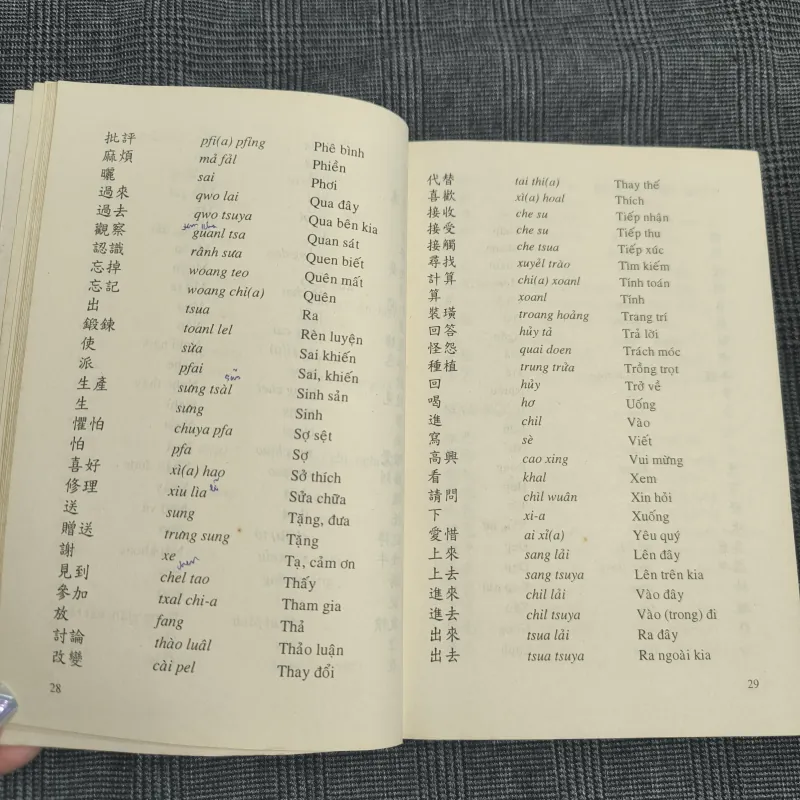 批評 pfi(a) pfing Phê bình
麻煩 mả fàl Phiền
曬 sai Phơi
過來 qwo lai Qua đây
過去 qwo tsuya Qua bên kia
觀察 guanl tsa Quan sát
認識 rânh sưa Quen biết
忘掉 woang teo Quên mất
忘記 woang chi(a) Quên
出 tsua Ra
鍛鍊 toanl lel Rèn luyện
使 sừa Sai khiến
派 pfai Sai, khiến
生產 sưng tsàl Sinh sản
生 sưng Sinh
懼怕 chuya pfa Sợ sệt
怕 pfa Sợ
喜好 xì(a) hao Sở thích
修理 xiu lìa Sửa chữa
送 sung Tặng, đưa
贈送 trưng sung Tặng
謝 xe Tạ, cảm ơn
見到 chel tao Thấy
參加 txal chi-a Tham gia
放 fang Thả
討論 thào luâl Thảo luận
改變 cài pel Thay đổi
28
代替 tai thi(a) Thay thế
喜歡 xì(a) hoal Thích
接收 che su Tiếp nhận
接受 che su Tiếp thu
接觸 che tsua Tiếp xúc
尋找 xuyêl trào Tìm kiếm
計算 chi(a) xoanl Tính toán
算 xoanl Tính
裝璜 troang hoảng Trang trí
回答 hủy tả Trả lời
怪怨 quai doen Trách móc
種植 trung trửa Trồng trọt
回 hủy Trở về
喝 hơ Uống
進 chil Vào
寫 sè Viết
高興 cao xing Vui mừng
看 khal Xem
請問 chìl wuân Xin hỏi
下 xi-a Xuống
愛惜 ai xỉ(a) Yêu quý
上來 sang lải Lên đây
上去 sang tsuya Lên trên kia
進來 chil lải Vào đây
進去 chil tsuya Vào (trong) đi
出來 tsua lải Ra đây
出去 tsua tsuya Ra ngoài kia
29